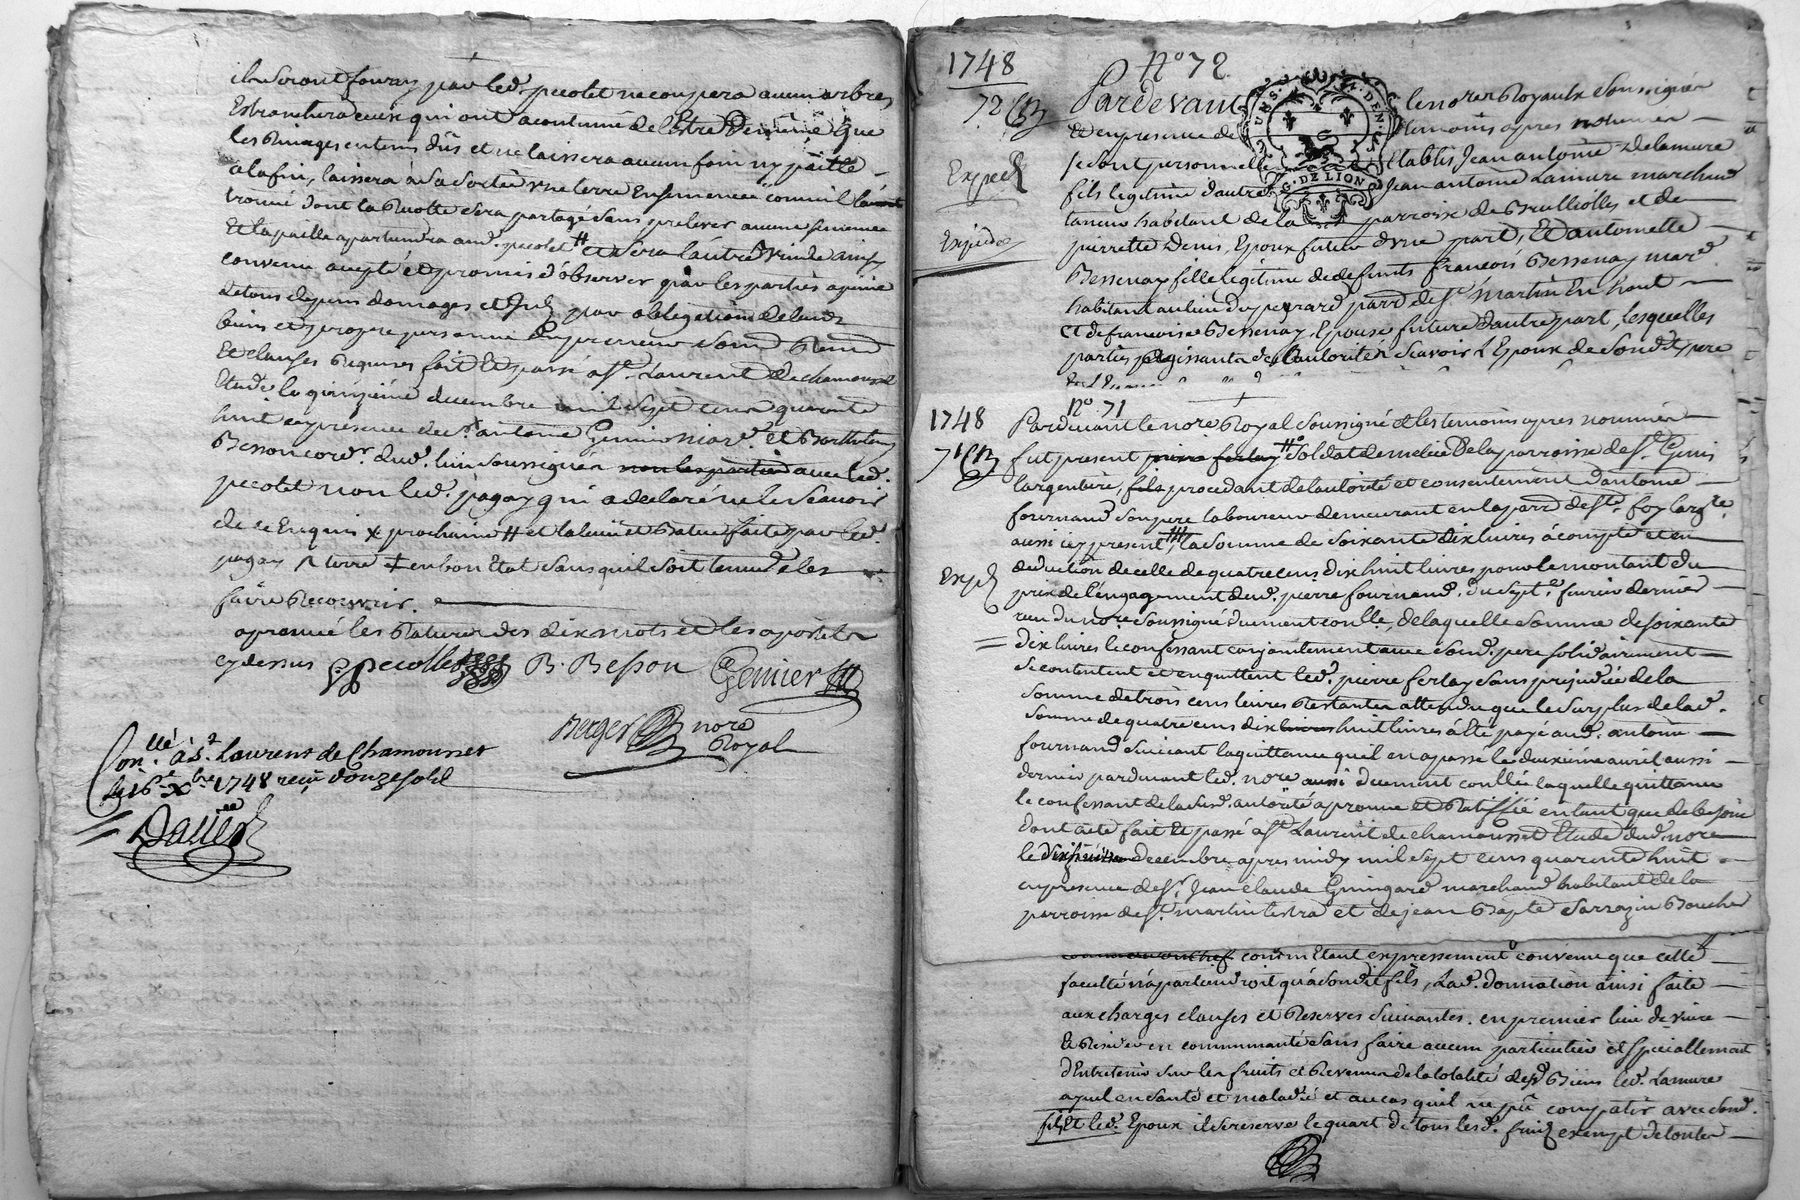 ils seront fourny par led. pecolet ne coupera aucun arbres
Estranchera ceux qui ont acoutumé de l'Estre De même que
les Pinages en tems dus et ne laissera aucun foin ny paille
a la fin, laissera à sa Sortie une terre Ensemencée comme il
trouvé dont la sera partagé sans prelever aucune semence
Et la paille apartiendra aud. pecolet # et sera l'autre vuide ainsy
convenu accepté et promis d'observer par les parties a peine
de tous depens domages et par obligation de leurs
biens et propre personne
Et clauses Requises fait Et passé à St. Laurent de chamousset
Etude le quinzième decembre mil sept cens quarante
huit en presence de Sr. antoine Genier mar. et Barthelemy
Besson cord. dud. lieu soussignés non les parties avec led.
pecolet non led. pagay qui a declaré ne le Scavoir
de ce Enquis x prochaine # et faite par led.
pagay terre + en bon Etat sans quil soit tenu de les
faire Recouvrir.
aprouvé les Ratures des dix mots et les apostilles
cy dessus Pecollet B. Besson Genier
Berger nore
Royal
Con.llé à St. Laurens de Chamousset
le 16e Xbre 1748 reçu douze sols
1748 No 72
72 Pardevant le nore Royal Soussigné
Et en presence de temoins apres nommés
Exped Se sont personnelle Etablis, Jean antoine Delamure
fils legitime d'autre Jean antoine Lamure marchand
taneur habitant de la parroisse de Brulliolles et de
Expedié pierrette Denis, Epoux futur d'une part, Et antoinette
Bessenay fille legitime de defunts francois Bessenay mard.
habitant au lieu du perrard parr de St. martin En haut
et de francoise Bessenay, Epouse future d'autre part, lesquelles
parties procedants de l'autorité Scavoir L'Epoux de Sond. pere
UES. N. DE N
G. DE LION
1748 No 71
71 Pardevant le nore Royal Soussigné et les temoins apres nommés
fut present pierre ferlay # Soldat de milice De la parroisse de St. Genis
largentiere, fils procedant de l'autorité et consentement d'antoine
fournand Son pere laboureur demeurant en la parr de Ste. foy largre.
aussi icy present, la Somme de Soixante dix livres à compte et en
Exped deduction de celle de quatre cens dix huit livres pour le montant du
prix de l'engagement dud. pierre fournand. du Sept. fevrier dernier
recu du nore Soussigné duement conllé, de laquelle Somme de soixante
dix livres le confessant conjointement avec Sond. pere solidairement
Se contentent et en quittent led. pierre ferlay sans prejudice de la
Somme de trois cens livres Restantes attendu que le Surplus de lad.
Somme de quatre cens dix livres huit livres à été payé aud. antoine
fournand Suivant la quittance quil en a passé le deuxième avril aussi
dernier pardevant led. nore aussi duement conllée laquelle quittance
le confessant de la susd. autorité aprouve et Ratiffié en tant que de besoin
Dont acte fait Et passé à St. Laurent de chamousset Etude dud. nore
le dixhuitieme decembre apres midy mil sept cens quarente huit
en presence de Sr. Jean Claude Guingard marchand habitant de la
parroisse de St. martin lestra et de jean Bapte Sarrazin Boucher
comm Etant expressement convenu que cette
faculté n'apartiendroit qu'à Sond. fils, Lad. donnation ainsi faite
aux charges clauses et Reserves Suivantes. en premier lieu de vivre
Et Resider en communauté sans faire aucun particulier et specialement
d'Entretenir sur les fruits et Revenus de la totalité desd. Biens led. Lamure
ayeul en santé et maladie et au cas quil ne pû compatir avec Sond.
fils Et led. Epoux il se reserve le quart de tous lesd. fruits exempt de toutes